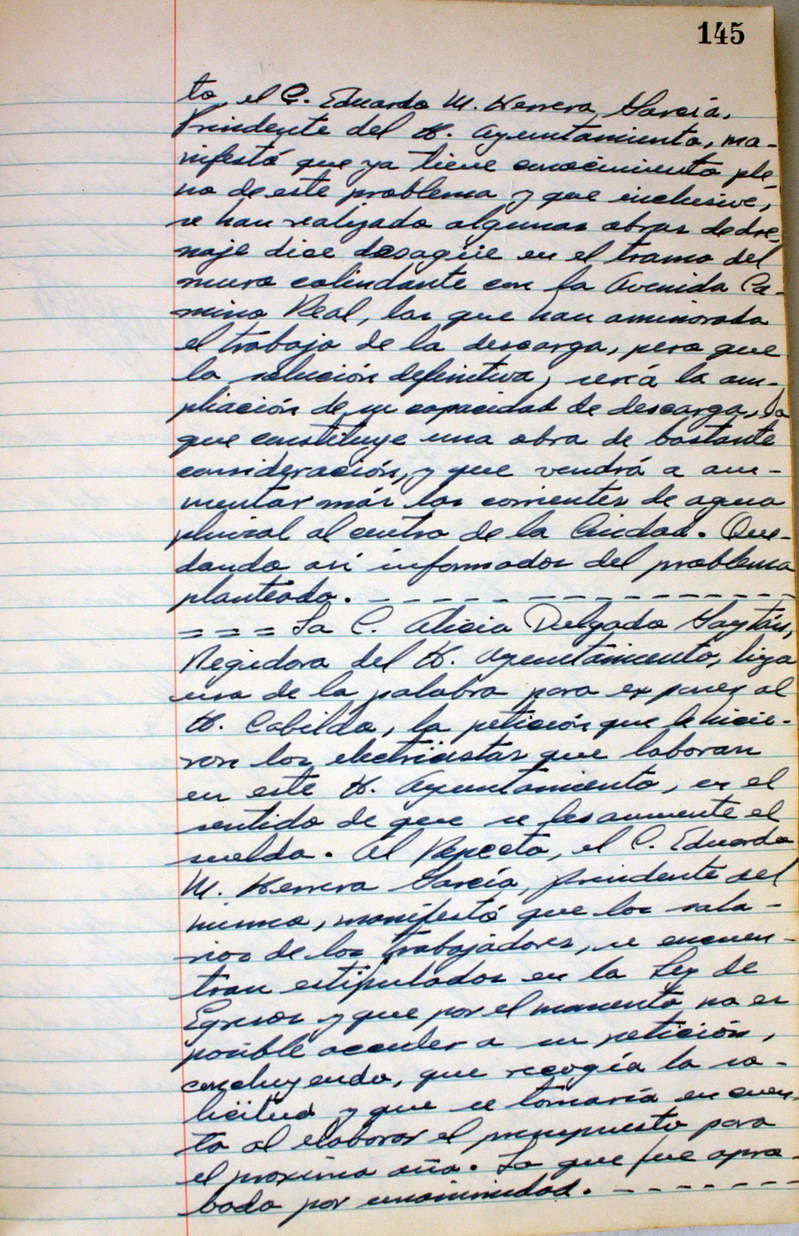 145
to, el C. Eduardo M. Herrera García,
Presidente del H. Ayuntamiento, ma-
nifestó que ya tiene conocimiento ple-
no de este problema y que inclusive,
se han realizado algunas obras de dre-
naje dice desagüe en el tramo del
muro colindante con la Avenida Ca-
mino Real, las que han aminorado
el trabajo de la descarga, pero que
la solución definitiva, será la am-
pliación de su capacidad de descarga, lo
que constituye una obra de bastante
consideración, y que vendrá a au-
mentar más las corrientes de agua
pluvial al centro de la Ciudad. Que-
dando así informados del problema
planteado. - - - - - - - - - - - - - - -
= = = La C. Alicia Delgado Gaytán,
Regidora del H. Ayuntamiento, hizo
uso de la palabra para exponer al
H. Cabildo, la petición que le hicie-
ron los electricistas que laboran
en este H. Ayuntamiento, en el
sentido de que se les aumente el
sueldo. Al Respecto, el C. Eduardo
M. Herrera García, presidente del
mismo, manifestó que los sala-
rios de los trabajadores, se encuen-
tran estipulados en la Ley de
Egresos y que por el momento no es
posible acceder a su petición,
concluyendo, que recogía la so-
licitud y que se tomaría en cuen-
ta al elaborar el presupuesto para
el proximo año. Lo que fue apro-
bado por unanimidad. - - - - - - -